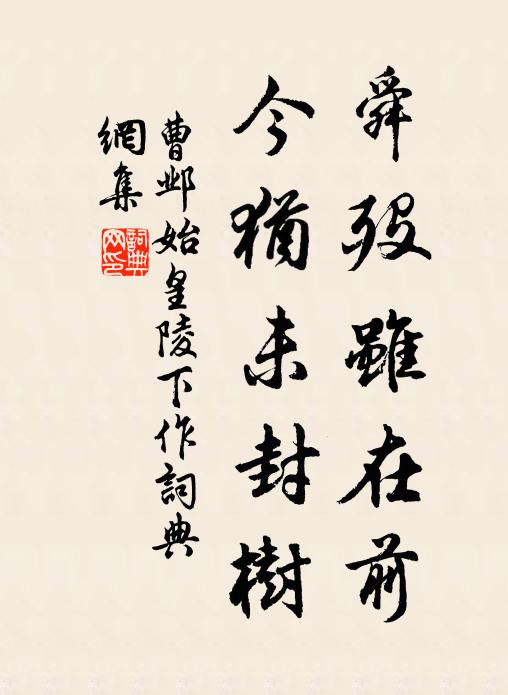 舜歿雖在前
今猶未封樹
曹邺始皇陵下作詞典
網集
詞典網印